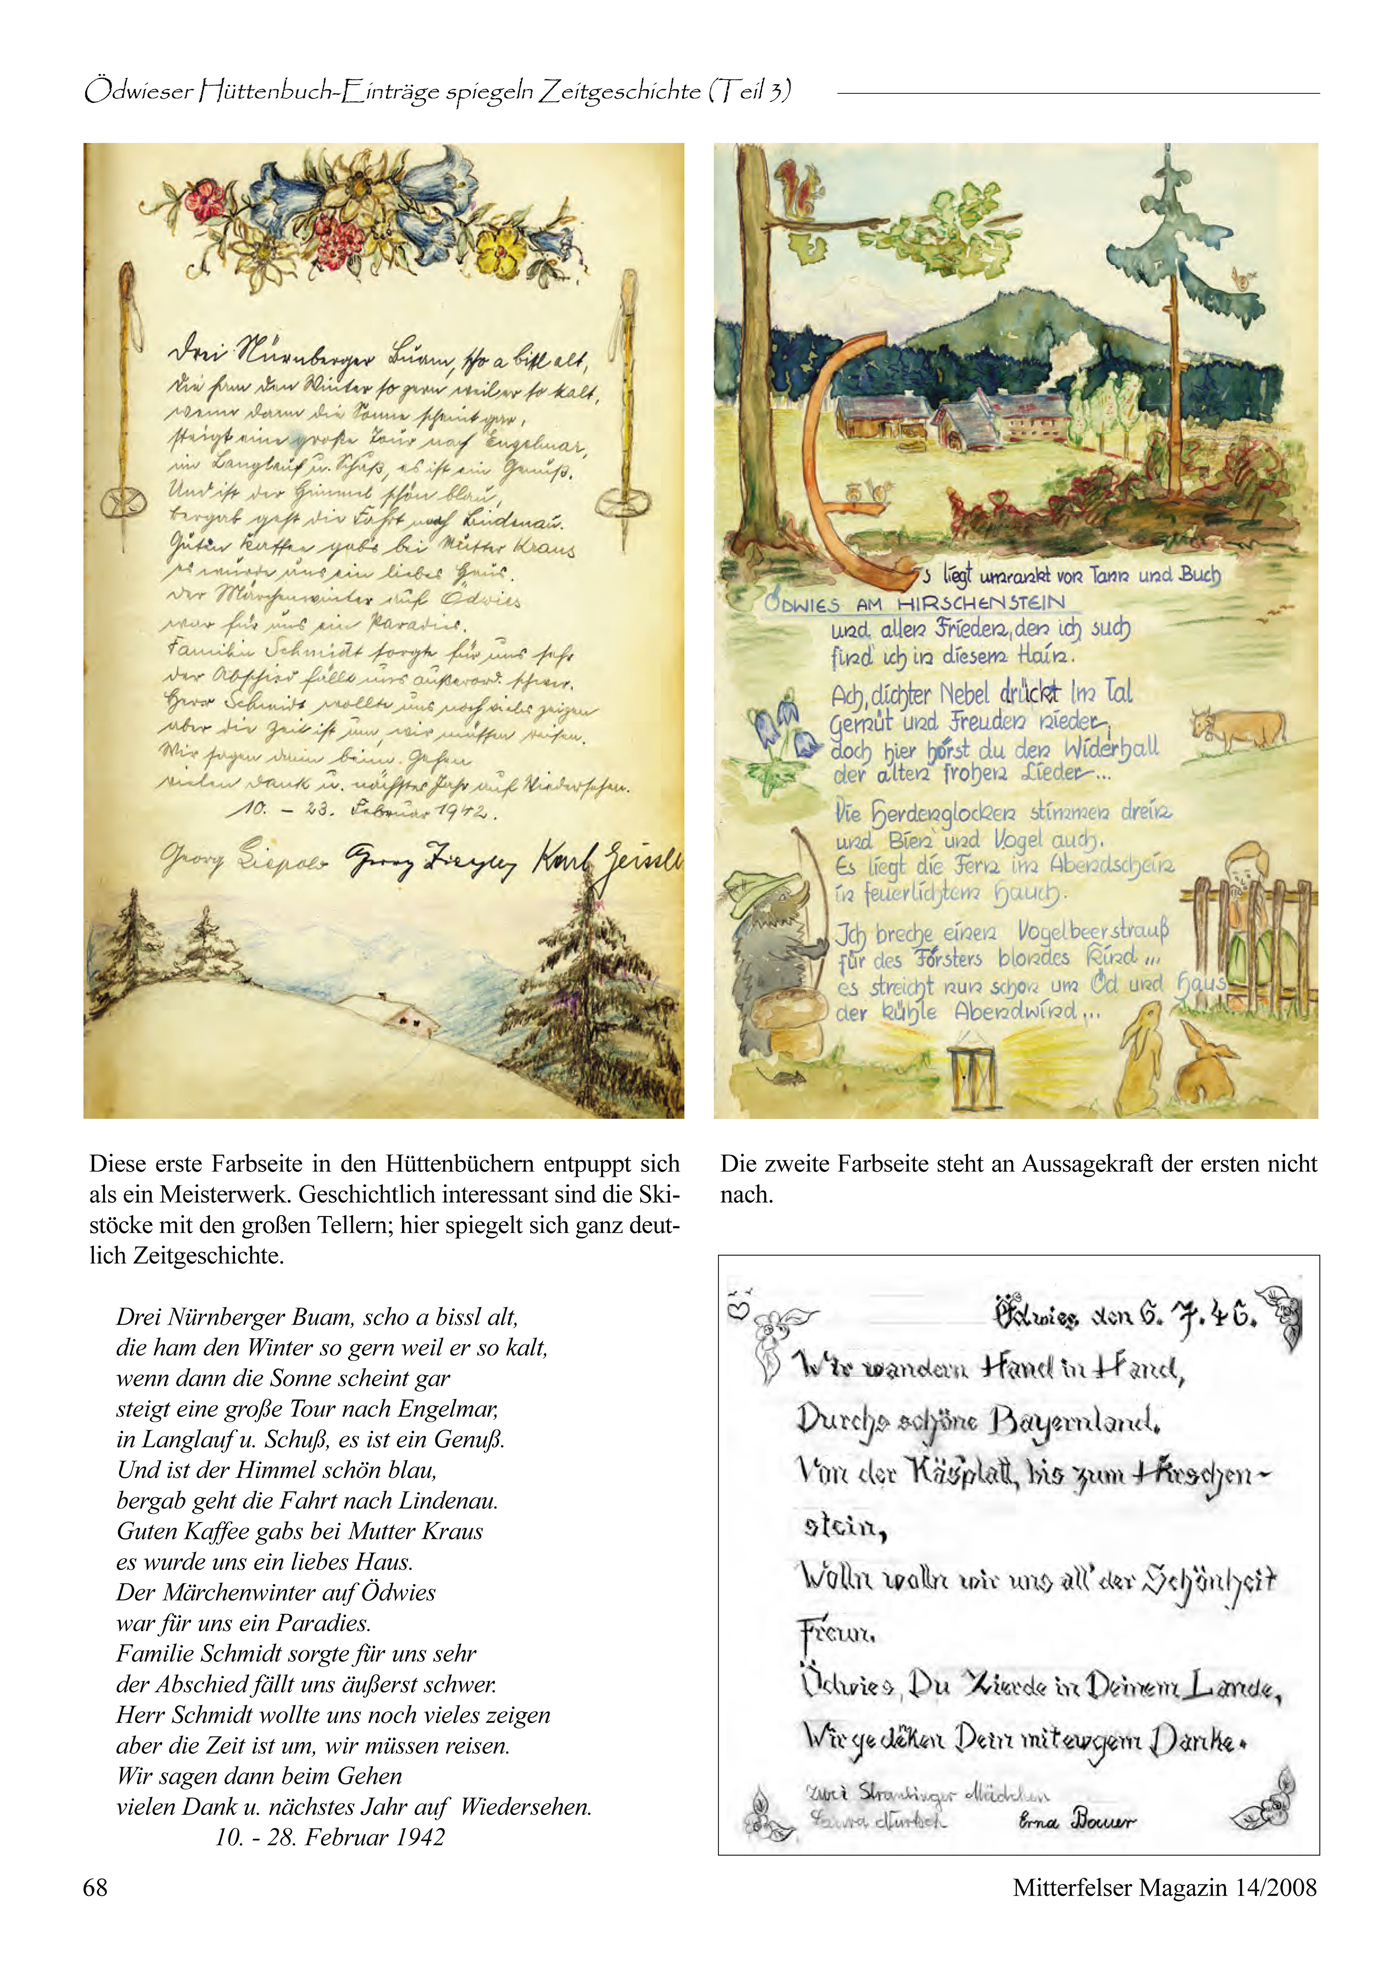 Ödwieser Hüttenbuch-Einträge spiegeln Zeitgeschichte (Teil 3)
Drei Nürnberger Buam, scho a bissl alt,
die ham den Winter so gern weil er so kalt,
wenn dann die Sonne scheint gar,
steigt eine große Tour nach Engelmar,
im Langlauf u. Schuß, es ist ein Genuß.
Und ist der Himmel schön blau,
bergab geht die Fahrt nach Lindenau.
Guten Kaffee gabs bei Mutter Kraus
es wurde uns ein liebes Haus.
Der Märchenwinter auf Ödwies
war für uns ein Paradies.
Familie Schmidt sorgte für uns sehr
der Abschied fällt uns außerord. schwer.
Herr Schmidt wollte uns noch vieles zeigen
aber die Zeit ist um, wir müssen reisen.
Wir sagen dann beim Gehen
vielen Dank u. nächstes Jahr auf Wiedersehen.
10. – 23. Februar 1942.
Georg Georg Karl
Es liegt umrankt von Tann und Buch
ÖDWIES AM HIRSCHENSTEIN
und allen Frieden, den ich such
find ich in diesem Hain.
Ach, dichter Nebel drückt im Tal
Gemüt und Freuden nieder,
doch hier hörst du den Widerhall
der alten frohen Lieder...
Die Herdenglocken stimmen drein
und Bien und Vogel auch.
Es liegt die Fern im Abendschein
in feuerlichtem Hauch.
Ich breche einen Vogelbeerstrauß
für des Försters blondes Kind...
es streicht nun schon um Öd und Haus
der kühle Abendwind...
Diese erste Farbseite in den Hüttenbüchern entpuppt sich
als ein Meisterwerk. Geschichtlich interessant sind die Ski-
stöcke mit den großen Tellern; hier spiegelt sich ganz deut-
lich Zeitgeschichte.
Drei Nürnberger Buam, scho a bissl alt,
die ham den Winter so gern weil er so kalt,
wenn dann die Sonne scheint gar
steigt eine große Tour nach Engelmar,
in Langlauf u. Schuß, es ist ein Genuß.
Und ist der Himmel schön blau,
bergab geht die Fahrt nach Lindenau.
Guten Kaffee gabs bei Mutter Kraus
es wurde uns ein liebes Haus.
Der Märchenwinter auf Ödwies
war für uns ein Paradies.
Familie Schmidt sorgte für uns sehr
der Abschied fällt uns äußerst schwer.
Herr Schmidt wollte uns noch vieles zeigen
aber die Zeit ist um, wir müssen reisen.
Wir sagen dann beim Gehen
vielen Dank u. nächstes Jahr auf Wiedersehen.
10. - 28. Februar 1942
Die zweite Farbseite steht an Aussagekraft der ersten nicht
nach.
Ödwies, den 6. 7. 46.
Wir wandern Hand in Hand,
Durchs schöne Bayernland.
Von der Käsplatt, bis zum Hirschen-
stein,
Wolln wolln wir uns all' der Schönheit
Freun.
Ödwies, Du Zierde in Deinem Lande,
Wir gedeken Dein mit ewgem Danke.
Zwei Straubinger Mädchen
Erna Bauer
68
Mitterfelser Magazin 14/2008